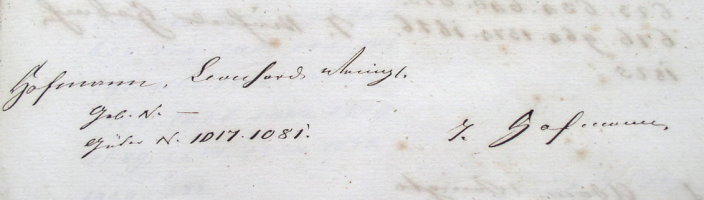 Hofmann, Leonhard,
Geb. N. —
Güter N. 1017. 1081.
J. Hofmann,